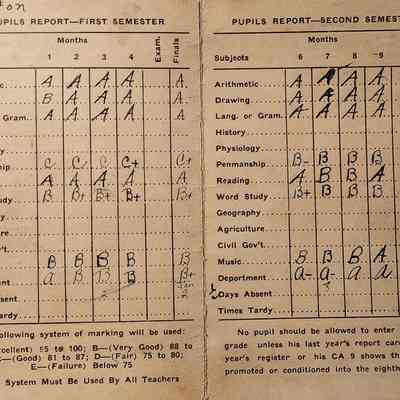 ton
PUPILS REPORT—FIRST SEMESTER
Months
1 2 3 4 Exam. Finals
A A A A A
B A A A A
Gram. A A A A A
ship C C C C+ C+
A A A A A
tudy B B+ B+ B+ B+
e
't.
B B B B B
ent A B B B B+
sent 2
rdy
following system of marking will be used:
xcellent) 95 to 100; B—(Very Good) 88 to
C—(Good) 81 to 87; D—(Fair) 75 to 80;
E—(Failure) Below 75
System Must Be Used By All Teachers
PUPILS REPORT—SECOND SEMEST
Months
Subjects 6 7 8 9
Arithmetic A A A A
Drawing A A A A
Lang. or Gram. A A A A
History
Physiology
Penmanship B- B B B
Reading A B B A
Word Study B+ B B B
Geography
Agriculture
Civil Gov't.
Music B B B A
Deportment A- A- A A
½ Days Absent 3
Times Tardy
No pupil should be allowed to enter
grade unless his last year's report card
year's register or his CA 9 shows th
promoted or conditioned into the eighth